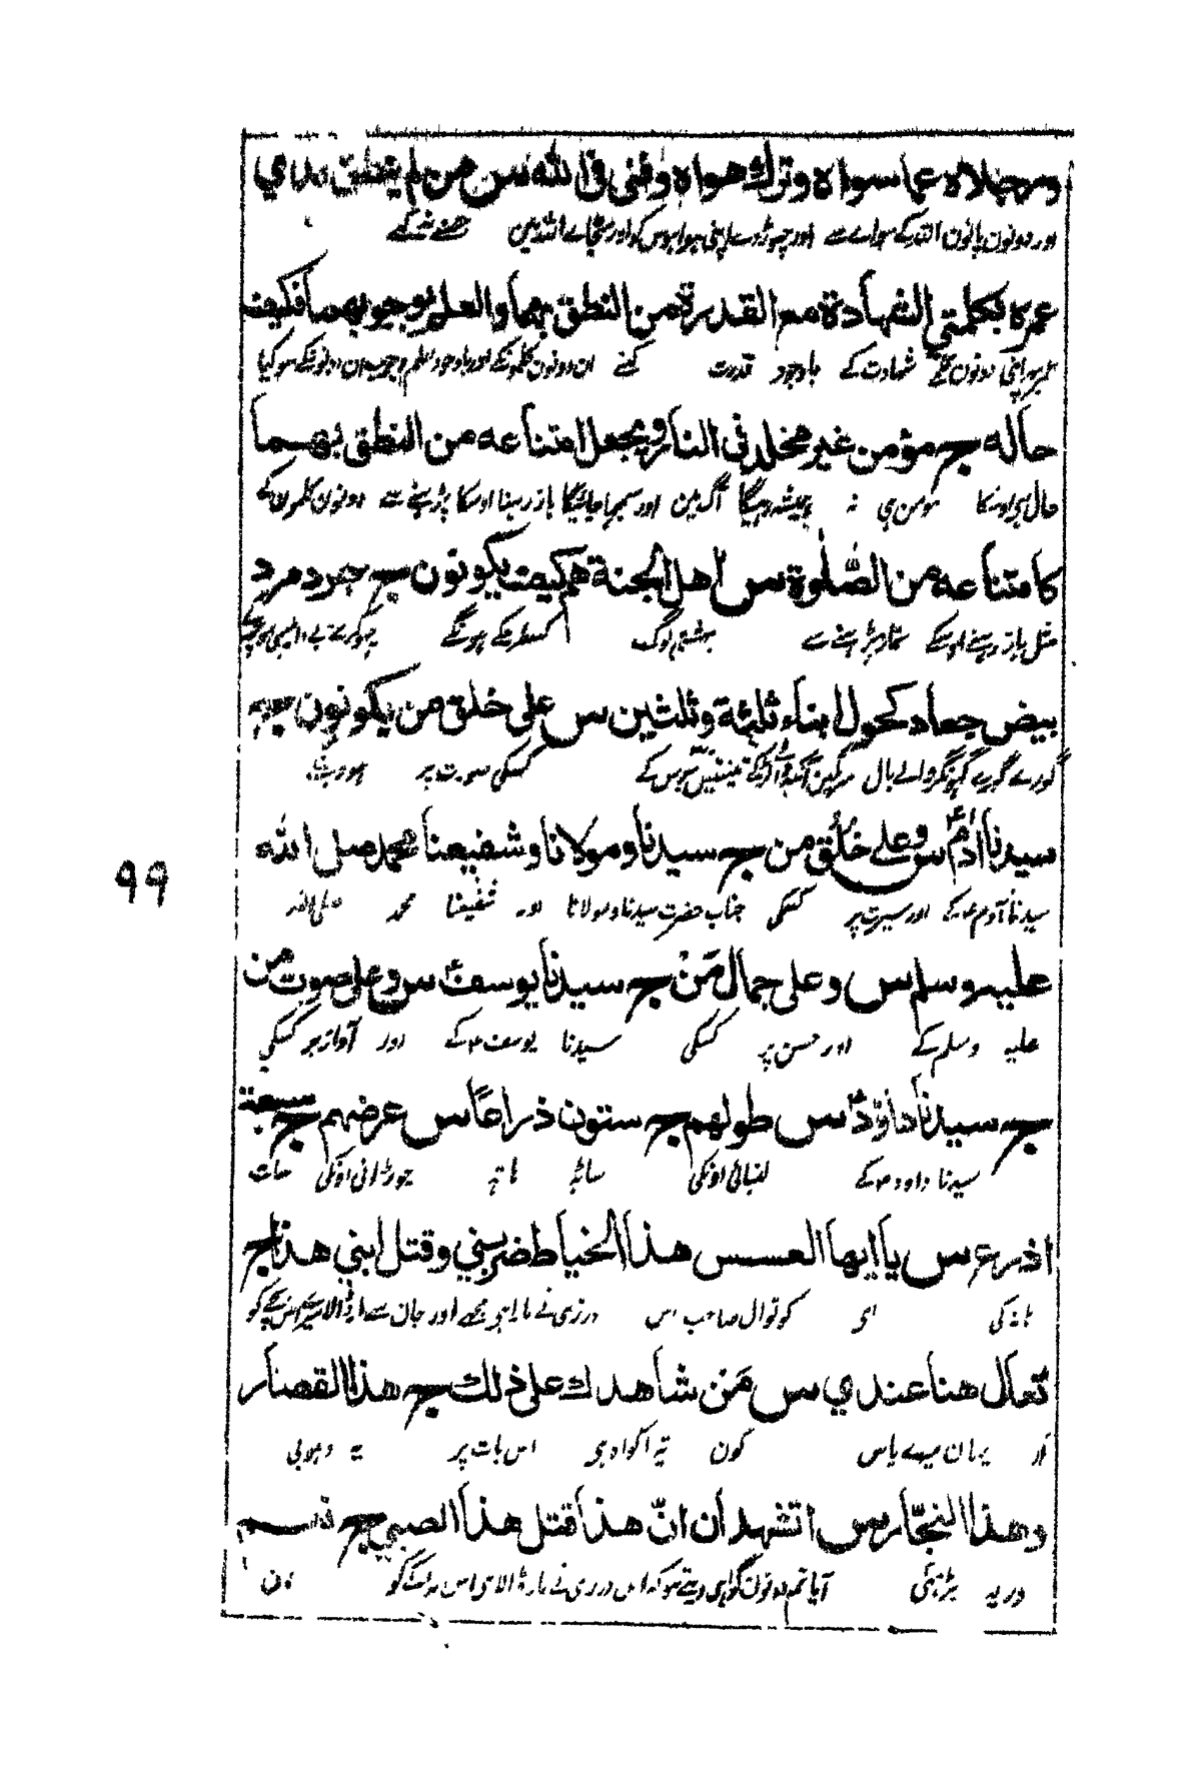 ورجلاه عما سواه وترك هواه وفنى فى الله س من لم ينطق مدى
اور دونون پانون اللہ کے سواے سے اور چھوڑدے اپنی ہوا ہوس کو اور مٹجاے اللہ مین جسنے نہ کہے
عمره بكلمتي الشهادة مع القدرة من النطق بهما والعلم بوجوبهما فكيف
عمر بھر اپنی دونون کلمے شہادت کے باوجود قدرت کہنے ان دونون کلمونکے اور باوجود علم وجوب ان دونونکے سو کیا
حاله ج مؤمن غير مخلد فى النار ويجعل امتناعه من النطق بهما
حال ہی اوسکا مومن ہی نہ ہمیشہ رہیگا آگ مین اور سمجہا جائیگا باز رہنا اوسکا پڑہنے سے دونون کلمون کے
كامتناعه من الصلوة س اهل الجنة هم كيف يكونون ج جرد مرد
مثل باز رہنے اوسکے نماز پڑہنے سے بہشتی لوگ کسطرحکے ہونگے
بيض جعاد كحول ابناء ثلثة وثلثين س على خلق من يكونون ج
گورے گورے گہونگر والے بال سرمگین آنکہ والے تینتیس برس کے کسکی صورت پر
سيدنا آدم ع س وعلى خلق من ج سيدنا ومولانا وشفيعنا محمد صلى الله
سیدنا آدم ع کے اور سیرت پر کسکی جناب حضرت سیدنا ومولانا اور شفیعنا محمد صلی اللہ
عليه وسلم س وعلى جمال من ج سيدنا يوسف ع س وعلى صوت من
علیہ وسلم کے اور حسن پر کسکی سیدنا یوسف ع کے اور آواز پر کسکی
ج سيدنا داؤد ع س طولهم ج ستون ذراعا س عرضهم ج سبعة
سیدنا داود ع کے لنبائی اونکی ساٹہ ہاتہہ چوڑائی اونکی سات
اذرع س يا ايها العسس هذا الخياط ضربني وقتل ابني هذا ج
ہاتہ کی ای کوتوال صاحب اس درزی نے مارا ہی مجھے اور جان سے مارڈالا میرے اس بچے کو
تعال هنا عندي س من شاهدك على ذلك ج هذا القصار
آو یہان میرے پاس کون تیرا گواہ ہی اس بات پر یہ دہوبی
وهذا النجار س اتشهدان ان هذا قتل هذا الصبي ج نعم
اور یہ بڑہئی آیا تم دونون گواہی دیتے ہو کہ اس درزی نے مارڈالا ہی اس لڑکے کو ہان
۹۹